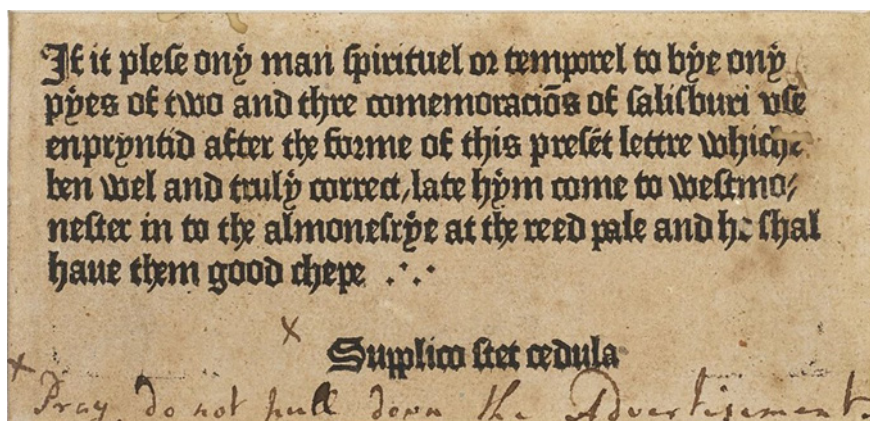 If it plese ony man spirituel or temporel to bye ony
pyes of two and thre comemoracioẽs of salisburi vse
enpryntid after the forme of this presẽt lettre whiche
ben wel and truly correct, late hym come to westmo⸗
nester in to the almonesrye at the reed pale and he shal
haue them good chepe .·.·
Supplico stet cedula
Pray do not pull down the Advertisement.